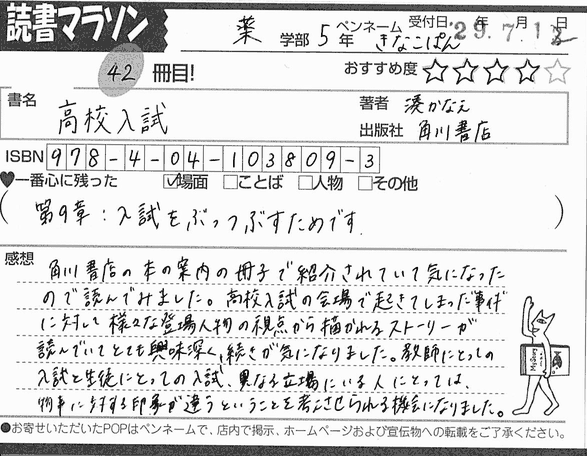 読書マラソン
薬 学部 5 年 ペンネーム きなこぱん 受付日 29.年7.月1 日
42 冊目! おすすめ度 ★★★★☆
書名 高校入試
著者 湊かなえ
出版社 角川書店
ISBN 978-4-04-103809-3
♥一番心に残った ☑場面 □ことば □人物 □その他
(第9章:入試をぶっつぶすためです.)
感想
角川書店の本の案内の冊子で紹介されていて気になった
ので読んでみました。高校入試の会場で起きてしまった事件
に対して様々な登場人物の視点から描かれるストーリーが
読んでいてとても興味深く、続きが気になりました。教師にとっての
入試と生徒にとっての入試、異なる立場にいる人にとっては、
物事に対する印象が違うということを考えさせられる機会になりました。
●お寄せいただいたPOPはペンネームで、店内で掲示、ホームページおよび宣伝物への転載をご了承ください。